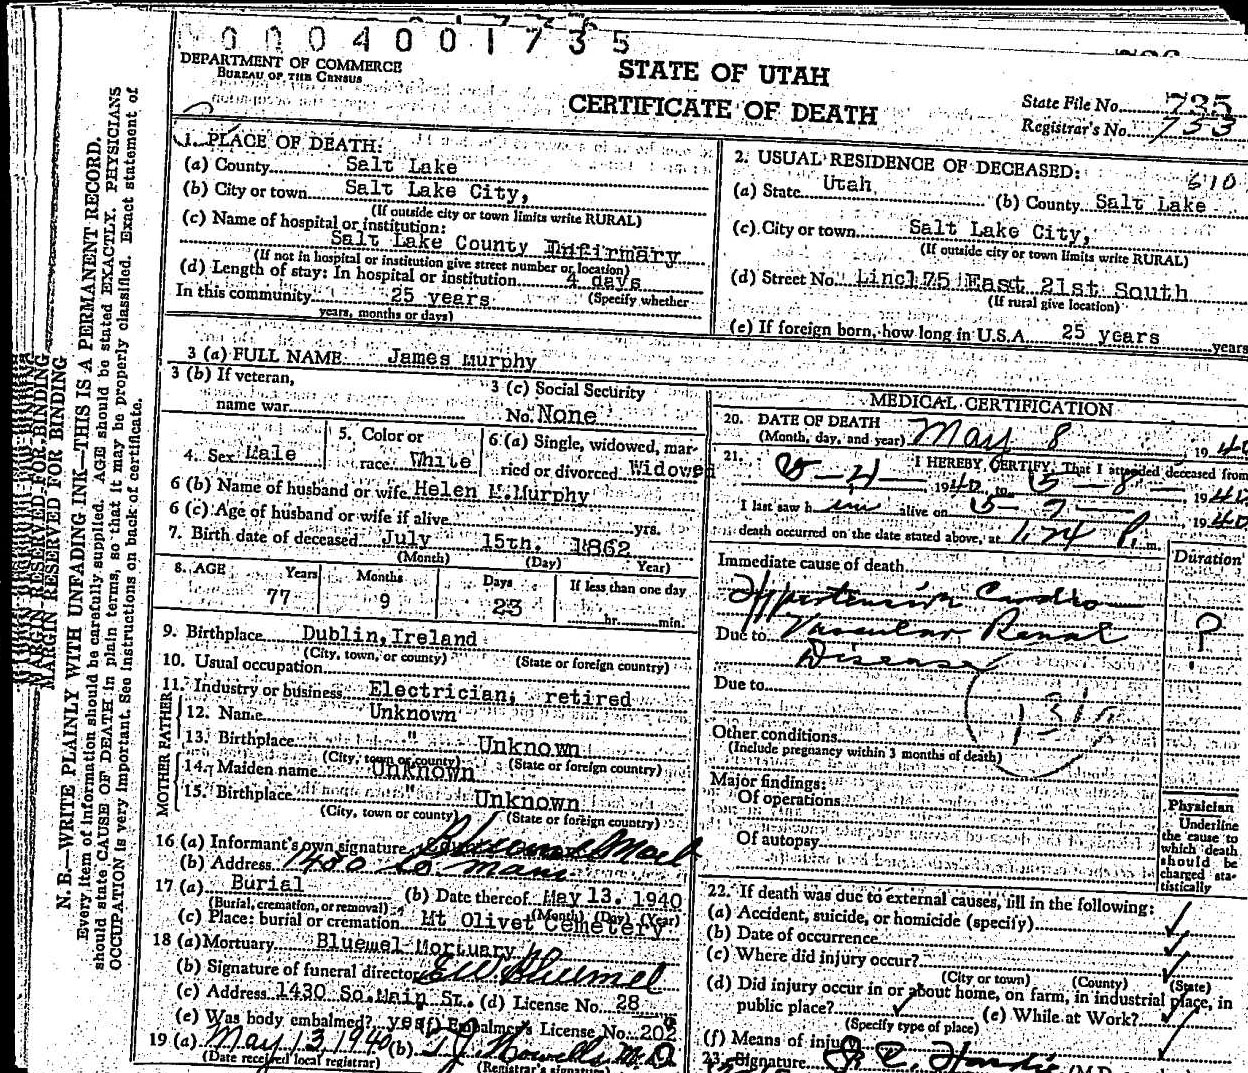 0004001735
DEPARTMENT OF COMMERCE
BUREAU OF THE CENSUS
STATE OF UTAH
CERTIFICATE OF DEATH
State File No. 735
Registrar's No. 733
1. PLACE OF DEATH:
(a) County Salt Lake
(b) City or town Salt Lake City,
(If outside city or town limits write RURAL)
(c) Name of hospital or institution:
Salt Lake County Infirmary
(If not in hospital or institution give street number or location)
(d) Length of stay: In hospital or institution 4 days
In this community 25 years (Specify whether
years, months or days)
2. USUAL RESIDENCE OF DECEASED: 610
(a) State Utah (b) County Salt Lake
(c) City or town Salt Lake City,
(If outside city or town limits write RURAL)
(d) Street No. 175 East 21st South
(If rural give location)
(e) If foreign born, how long in U.S.A. 25 years years
3 (a) FULL NAME James Murphy
3 (b) If veteran,
name war
3 (c) Social Security
No. None
4. Sex Male
5. Color or
race White
6 (a) Single, widowed, mar-
ried or divorced Widowed
6 (b) Name of husband or wife Helen M. Murphy
6 (c) Age of husband or wife if alive yrs.
7. Birth date of deceased July 15th. 1862
(Month) (Day) Year)
8. AGE Years Months Days If less than one day
77 9 23 hr. min.
9. Birthplace Dublin, Ireland
(City, town, or county) (State or foreign country)
10. Usual occupation
11. Industry or business Electrician, retired
FATHER
12. Name Unknown
13. Birthplace " Unknown
(City, town or county) (State or foreign country)
MOTHER
14. Maiden name Unknown
15. Birthplace " Unknown
(City, town or county) (State or foreign country)
16 (a) Informant's own signature
(b) Address 1430 So Main
17 (a) Burial (b) Date thereof May 13. 1940
(Burial, cremation, or removal) (Month) (Day) (Year)
(c) Place: burial or cremation Mt Olivet Cemetery
18 (a) Mortuary Bluemel Mortuary
(b) Signature of funeral director E W Bluemel
(c) Address 1430 So. Main St. (d) License No. 28
(e) Was body embalmed? yes (f) Embalmer's License No. 202
19 (a) May 13 1940 (b) T. J. Howells M.D.
(Date received local registrar) (Registrar's signature)
MEDICAL CERTIFICATION
20. DATE OF DEATH
(Month, day, and year) May 8, 1940
21. I HEREBY CERTIFY, That I attended deceased from
5-4- 1940 to 5-8- 1940
I last saw him alive on 5-7-, 1940
death occurred on the date stated above, at P. m.
Immediate cause of death
Duration
Hypertensive Cardio
Due to Vascular Renal
Disease
?
Due to
131
Other conditions
(Include pregnancy within 3 months of death)
Major findings:
Of operations
Of autopsy
Physician
Underline
the cause to
which death
should be
charged sta-
tistically
22. If death was due to external causes, fill in the following:
(a) Accident, suicide, or homicide (specify)
(b) Date of occurrence
(c) Where did injury occur?
(City or town) (County) (State)
(d) Did injury occur in or about home, on farm, in industrial place, in
public place? (e) While at Work?
(Specify type of place)
(f) Means of injury
23. Signature (M.D.
MARGIN RESERVED FOR BINDING
MARGIN RESERVED FOR BINDING
N. B.—WRITE PLAINLY WITH UNFADING INK—THIS IS A PERMANENT RECORD.
Every item of information should be carefully supplied. AGE should be stated EXACTLY. PHYSICIANS
should state CAUSE OF DEATH in plain terms, so that it may be properly classified. Exact statement of
OCCUPATION is very important. See instructions on back of certificate.